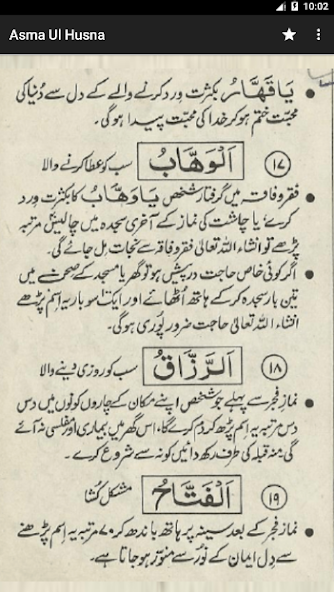 10:02
Asma Ul Husna
یَا قَھَّارُ بکثرت ورد کرنے والے کے دل سے دُنیا کی
محبّت ختم ہو کر خدا کی محبّت پیدا ہو گی۔
۱۷ اَلْوَھَّابُ سب کو عطا کرنے والا
فقر و فاقہ میں گرفتار شخص یَا وَھَّابُ کا بکثرت وِرد
کرے یا چاشت کی نماز کے آخری سجدہ میں چالیس مرتبہ
پڑھے تو انشاء اللہ تعالیٰ فقر و فاقہ سے نجات مل جائے گی۔
اگر کوئی خاص حاجت درپیش ہو تو گھر یا مسجد کے صحن سے میں
تین بار سجدہ کر کے ہاتھ اُٹھائے اور ایک سو بار یہ اِسم پڑھے
انشاء اللہ تعالیٰ حاجت ضرور پُوری ہو گی۔
۱۸ اَلرَّزَّاقُ سب کو روزی دینے والا
نمازِ فجر سے پہلے جو شخص اپنے مکان کے چاروں کونوں میں دس
دس مرتبہ یہ اِسم پڑھ کر دَم کرے گا، اس گھر میں بیماری اور مفلسی نہ آئے
گی منہ قبلہ کی طرف رکھ دائیں کونہ سے شروع کرے۔
۱۹ اَلْفَتَّاحُ مشکل کُشا
نمازِ فجر کے بعد سینہ پر ہاتھ باندھ کر ۷۰ مرتبہ یہ اِسم پڑھنے
سے دِل ایمان کے نُور سے منوّر ہو جاتا ہے۔